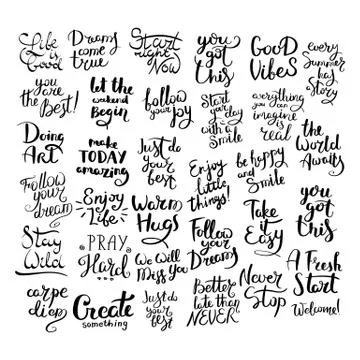 Life
is
Good
Dreams
come
true
Start
right
Now
you
got
this
GOOD
VIBES
every
Summer
has
Story
you
are
the Best!
let the
weekend
Begin
follow
your
joy
Start
your
day
with a
Smile
everything
you can
imagine
is
real
the
World
Awaits
Doing
Art
make
TODAY
amazing
Just do
your
best
Enjoy
little
things!
be happy
and
Smile
Follow
your
dream
Enjoy
Life
Warm
Hugs
Follow
your
Dreams
Take
it
Easy
you
got
this
Stay
Wild
PRAY
Hard
We Will
Miss You
Better
late than
NEVER
Never
Stop
A Fresh
Start
Welcome!
carpe
diem
Create
something
Just do
your
best